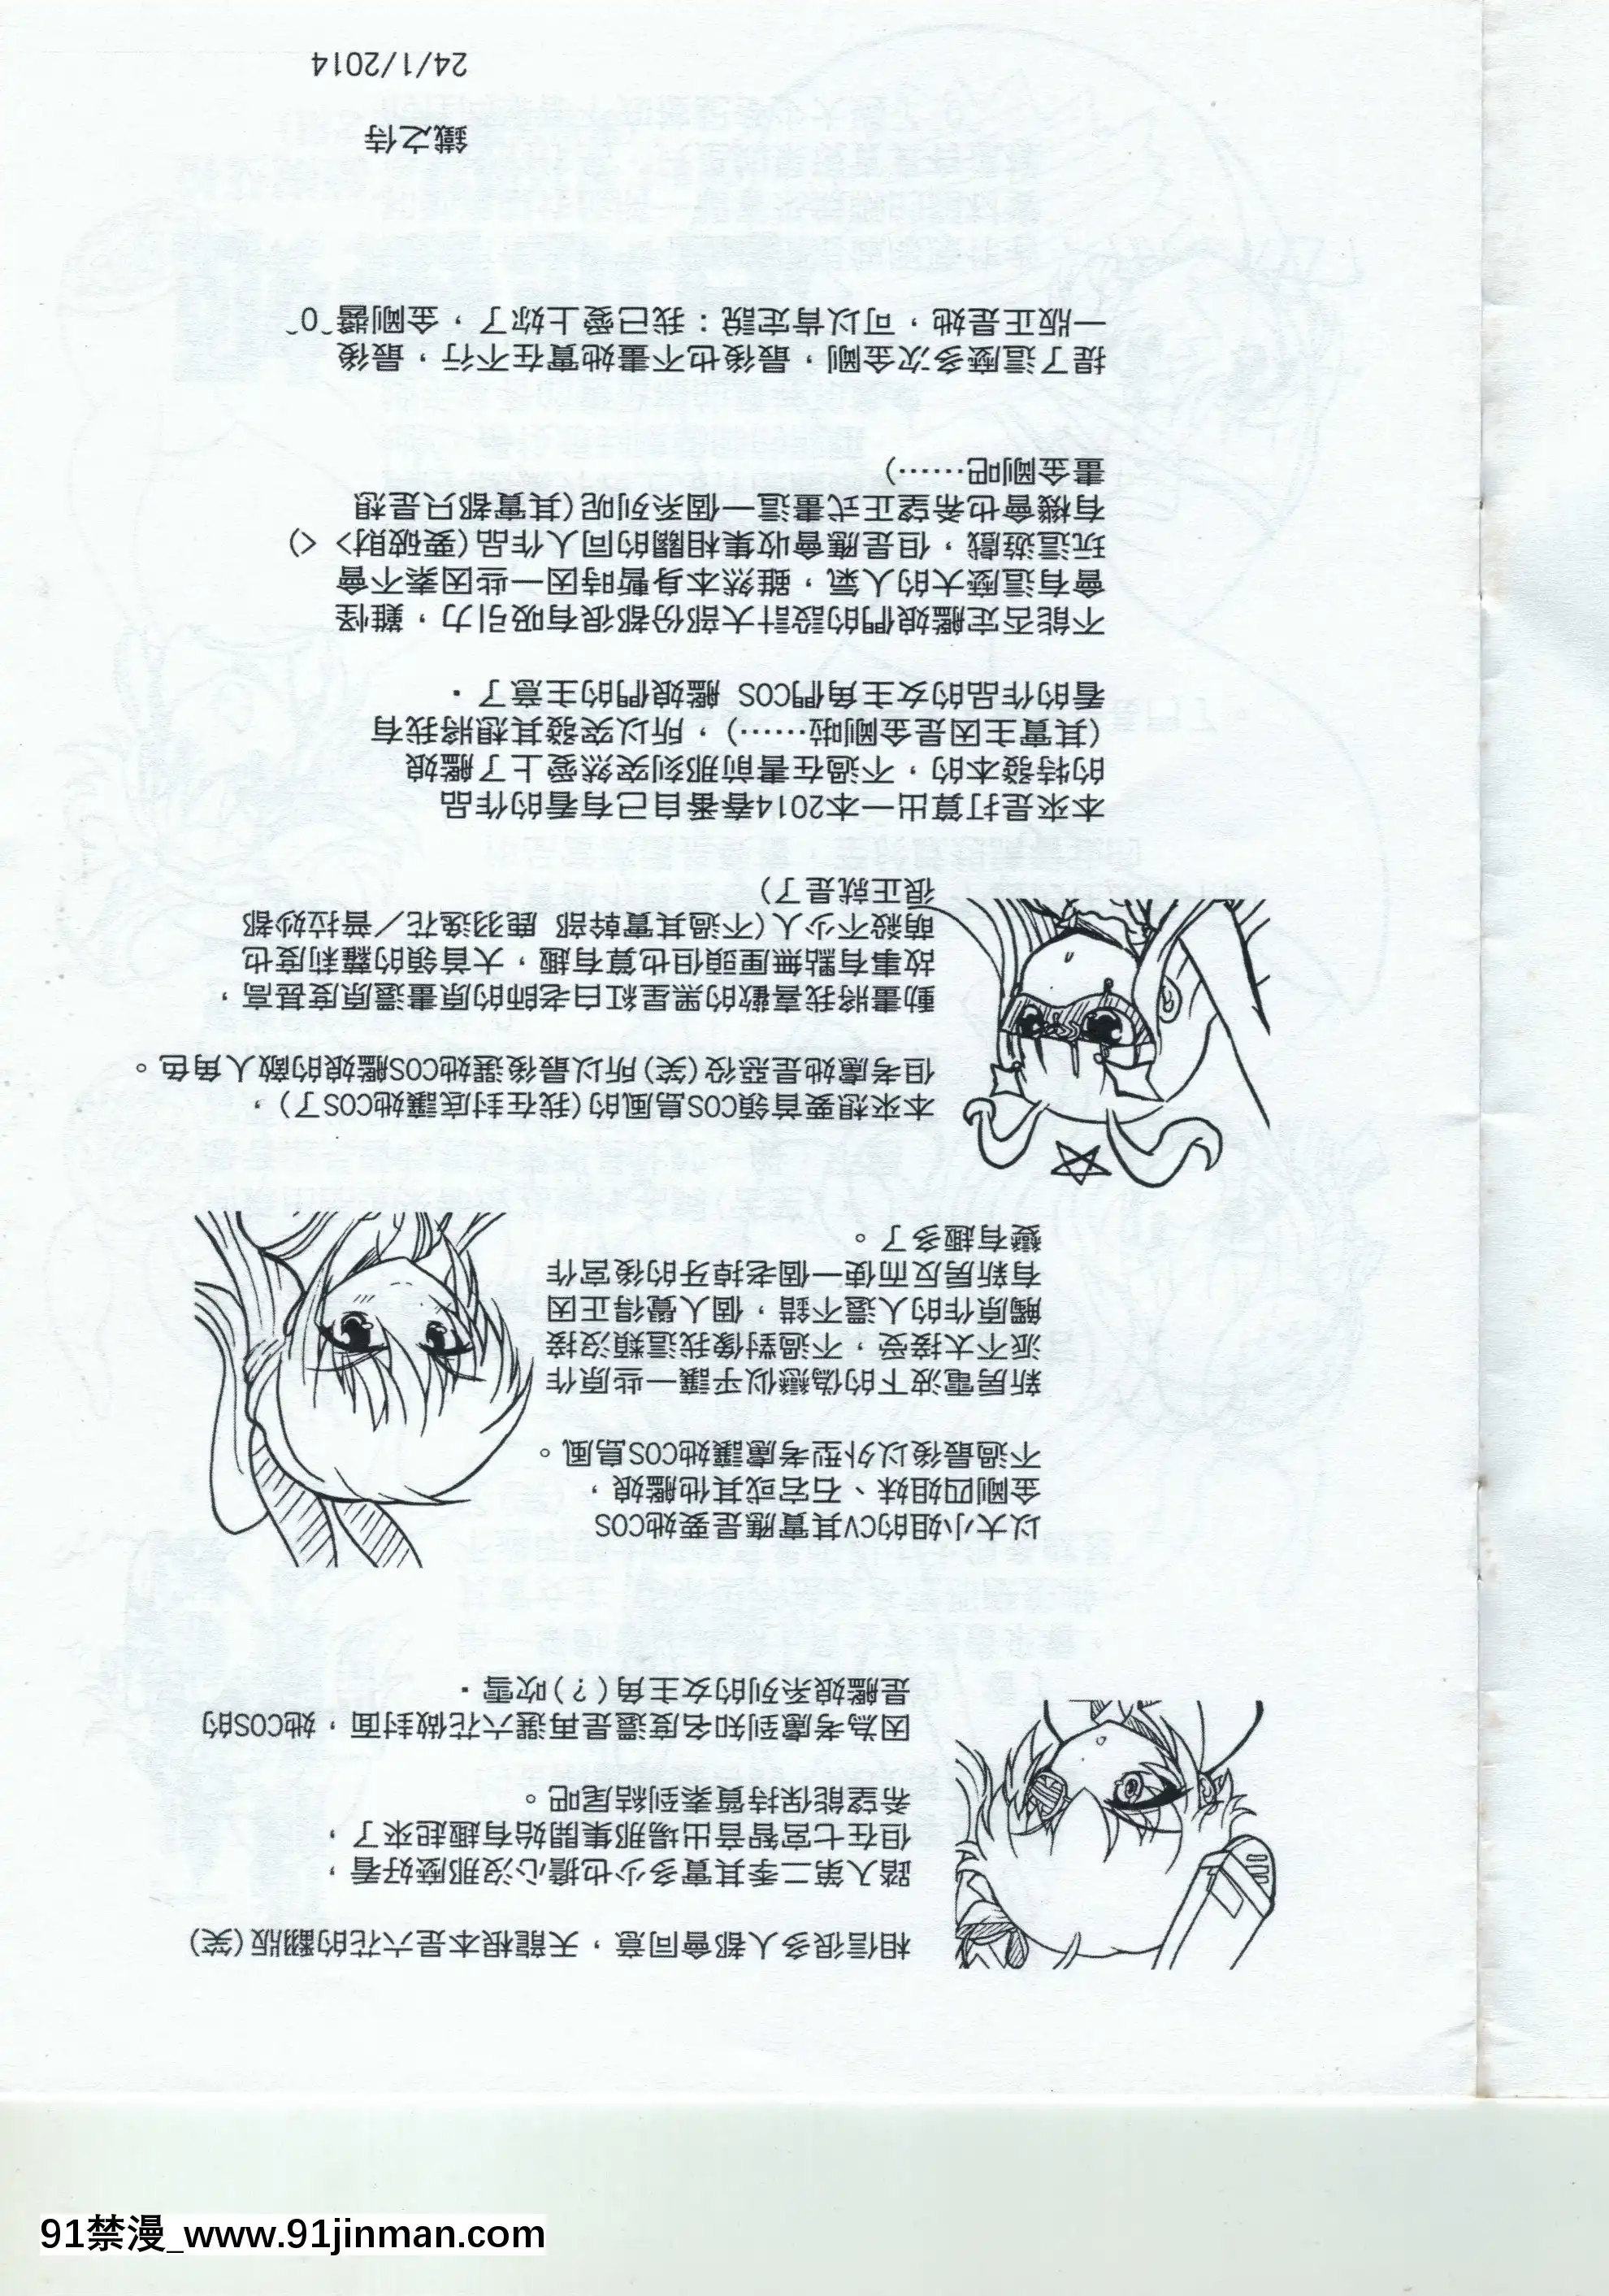 相信很多人都會同意，天龍根本是六花的翻版(笑)
踏入第二季其實多少也擔心沒那麼好看，
但在七宮智音出場那集開始有趣起來了，
希望能保持質素到結尾吧。
因為考慮到知名度還是再選六花做封面，她COS的
是艦娘系列的女主角(？)吹雪．
以大小姐的CV其實應是要她COS
金剛四姐妹、石宕或其他艦娘，
不過最後以外型考慮讓她COS島風。
新房電波下的偽戀似乎讓一些原作
派不太接受，不過對像我這類沒接
觸原作的人還不錯，個人覺得正因
有新房反而使一個老掉牙的後宮作
變有趣多了。
本來想要首領COS島風的(我在封底讓她COS了)，
但考慮她是惡役(笑)所以最後選她COS艦娘的敵人角色。
動畫將我喜歡的黑星紅白老師的原畫還原度甚高，
故事有點無厘頭但也算有趣，大首領的蘿莉度也
萌殺不少人(不過其實幹部 鹿羽逸花／普拉妙都
很正就是了)
本來是打算出一本2014春番自己有看的作品
的特發本的，不過在畫前那刻突然愛上了艦娘
(其實主因是金剛啦……)，所以突發其想將我有
看的作品的女主角們COS 艦娘們的主意了．
不能否定艦娘們的設計大部份都很有吸引力，難怪
會有這麼大的人氣，雖然本身暫時因一些因素不會
玩這遊戲，但是應會收集相關的同人作品(要破財> <)
有機會也希望正式畫這一個系列呢(其實都只是想
畫金剛吧……)
提了這麼多次金剛，最後也不畫她實在不行，最後
一版正是她，可以肯定說：我已愛上妳了，金剛醬^O^
鐵之侍
24/1/2014
91禁漫_www.91jinman.com